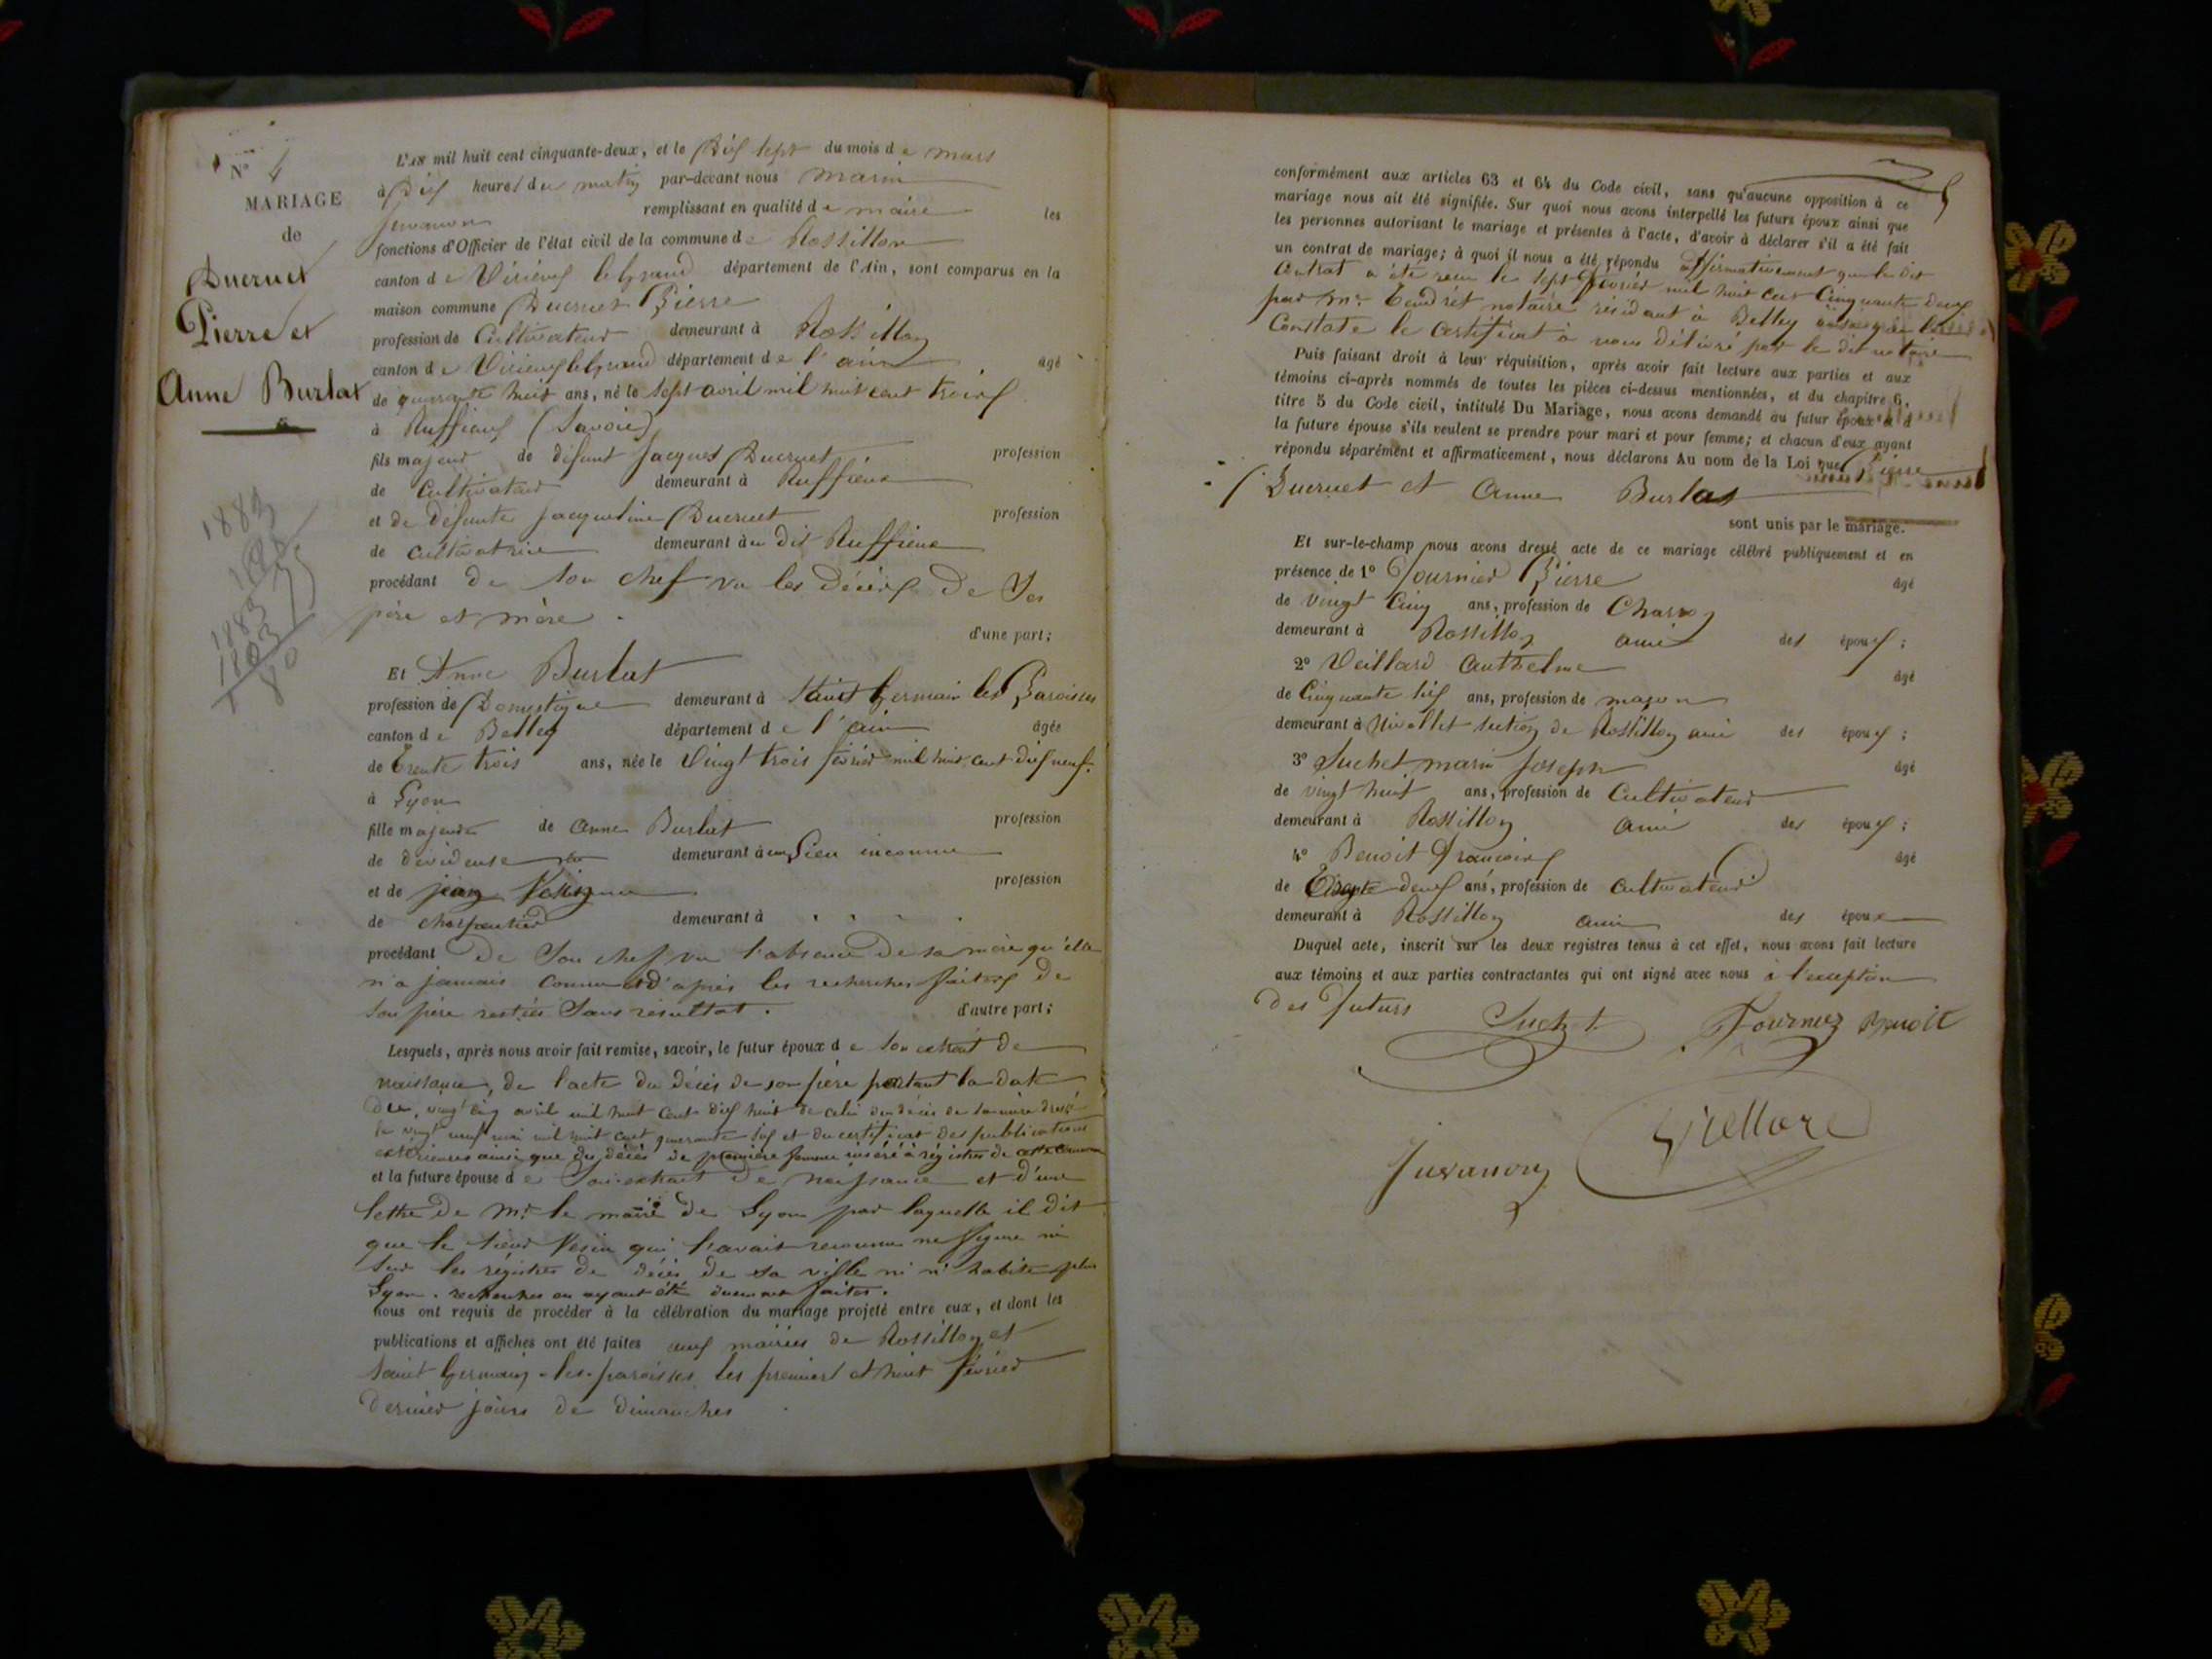 N° 4
MARIAGE
de
Ducruet
Pierre et
Anne Burlat
1883
1883
1803
80
L'an mil huit cent cinquante-deux, et le Dix sept du mois de mars
à Dix heures du matin par-devant nous marin
Juvanon remplissant en qualité de maire les
fonctions d'Officier de l'état civil de la commune de Rossillon
canton de Virieux le grand département de l'Ain, sont comparus en la
maison commune Ducruet Pierre
profession de Cultivateur demeurant à Rossillon
canton de Virieux le grand département de l'ain âgé
de quarante huit ans, né le sept avril mil huit cent trois
à Ruffieux (Savoie)
fils majeur de défunt Jacques Ducruet profession
de Cultivateur demeurant à Ruffieux
et de défunte Jacqueline Ducruet profession
de cultivatrice demeurant à u dit Ruffieux
procédant de son chef vu les décès de ses
père et mère.
d'une part;
Et Anne Burlat
profession de Domestique demeurant à Saint Germain les Paroisses
canton de Belley département de l'ain âgée
de trente trois ans, née le Vingt trois février mil huit cent dix neuf.
à Lyon
fille majeure de Anne Burlat profession
de dévideuse demeurant à un Lieu inconnu
et de jean profession
de charpentier demeurant à
procédant De Son chef vu l'absence De sa mère qu'elle
n'a jamais connu et d'après les recherches faites de
son père restées Sans résultat. d'autre part;
Lesquels, après nous avoir fait remise, savoir, le futur époux de son extrait de
naissance, de l'acte du décès de son père portant la date
du vingt cinq avril mil huit cent dix huit de celui du décès de sa mère dressé
le vingt neuf mai mil huit cent quarante six et du certificat des publications
extérieures ainsi que du décès de première femme inséré à régistres de cette commune
et la future épouse de Son extrait de naissance et d'une
lettre de Mr. le maire de Lyon par laquelle il dit
que le sieur Vesin qui l'avait reconnue ne figure ni
sur les régistres de décès de sa ville ni n'habite plus
Lyon. recherches en ayant été duement faites.
nous ont requis de procéder à la célébration du mariage projeté entre eux, et dont les
publications et affiches ont été faites aux mairies de Rossillon et
Saint Germain-les-paroisses les premier et huit février
dernier jours de dimanches
conformément aux articles 63 et 64 du Code civil, sans qu'aucune opposition à ce
mariage nous ait été signifiée. Sur quoi nous avons interpellé les futurs époux ainsi que
les personnes autorisant le mariage et présentes à l'acte, d'avoir à déclarer s'il a été fait
un contrat de mariage; à quoi il nous a été répondu affirmativement que le dit
contrat a été reçu le sept février mil huit cent Cinquante deux
par Mr. notaire résidant à Belley
Constate le Certificat à nous délivré par le dit notaire
Puis faisant droit à leur réquisition, après avoir fait lecture aux parties et aux
témoins ci-après nommés de toutes les pièces ci-dessus mentionnées, et du chapitre 6,
titre 5 du Code civil, intitulé Du Mariage, nous avons demandé au futur époux à
la future épouse s'ils veulent se prendre pour mari et pour femme; et chacun d'eux ayant
répondu séparément et affirmativement, nous déclarons Au nom de la Loi que Pierre
Ducruet et Anne Burlat
sont unis par le mariage.
Et sur-le-champ nous avons dressé acte de ce mariage célébré publiquement et en
présence de 1° Fournier Pierre âgé
de vingt Cinq ans, profession de Charron
demeurant à Rossillon ami des époux;
2° Veillard Anthelme âgé
de Cinquante six ans, profession de maçon
demeurant à Nivollet section de Rossillon ami des époux;
3° Suchet marin Joseph âgé
de vingt huit ans, profession de Cultivateur
demeurant à Rossillon ami des époux;
4° Benoit françois âgé
de deux ans, profession de Cultivateur
demeurant à Rossillon ami des époux
Duquel acte, inscrit sur les deux registres tenus à cet effet, nous avons fait lecture
aux témoins et aux parties contractantes qui ont signé avec nous à l'exception
Des futurs
Suchet Fournier Benoit
Juvanon